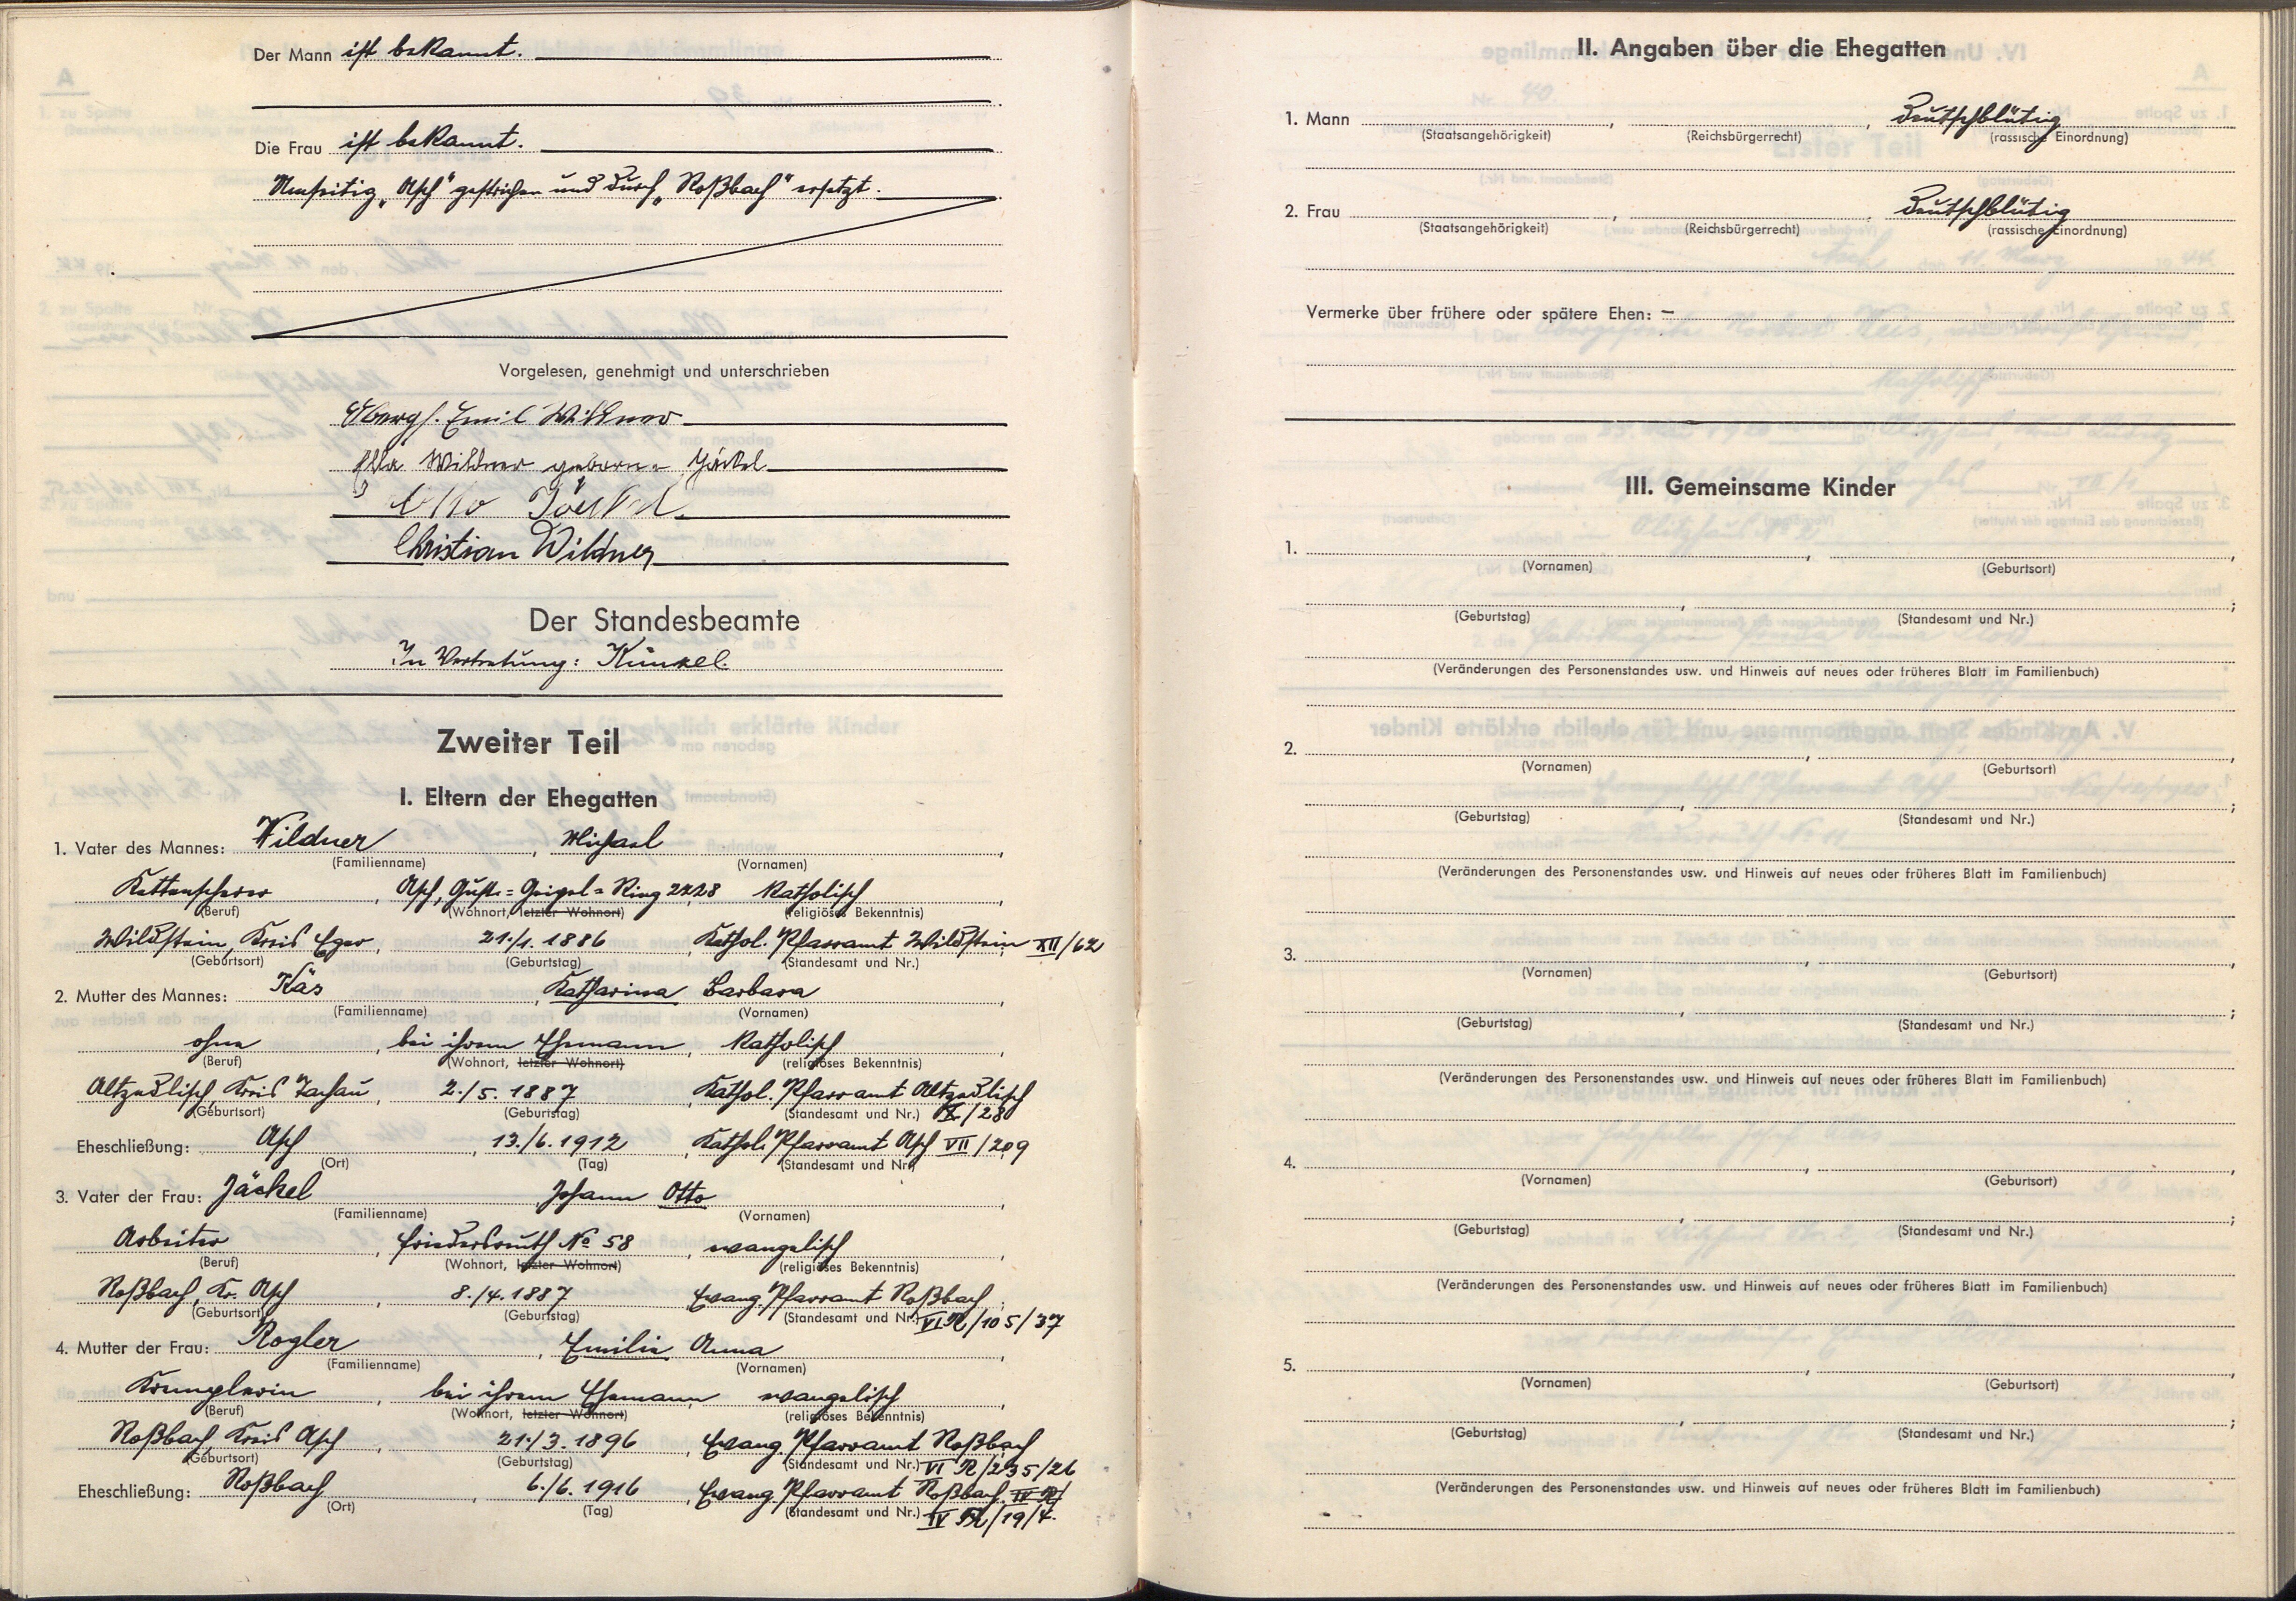 Der Mann ist bekannt.
Die Frau ist bekannt.
Umseitig „Asch“ gestrichen und durch „Roßbach“ ersetzt.
Vorgelesen, genehmigt und unterschrieben
Obergf. Emil Wildner
Ella Wildner geborne Jäckel
Otto Jäckel
Christian Wildner
Der Standesbeamte
In Vertretung: Künzel.
Zweiter Teil
I. Eltern der Ehegatten
1. Vater des Mannes: Wildner, Michael
(Familienname) (Vornamen)
Kettenscherer, Asch, Gust.=Geigel=Ring 2228 katholisch,
(Beruf) (Wohnort, letzter Wohnort) (religiöses Bekenntnis)
Wildstein, Kreis Eger, 21./1. 1886, Kathol. Pfarramt Wildstein XII/62
(Geburtsort) (Geburtstag) (Standesamt und Nr.)
2. Mutter des Mannes: Käs, Katharina Barbara,
(Familienname) (Vornamen)
ohne, bei ihrem Ehemann, katholisch,
(Beruf) (Wohnort, letzter Wohnort) (religiöses Bekenntnis)
Altzedlisch, Kreis Tachau, 2./5. 1887, Kathol. Pfarramt Altzedlisch
(Geburtsort) (Geburtstag) (Standesamt und Nr.) X/28
Eheschließung: Asch, 13./6. 1912, Kathol. Pfarramt Asch VII/209
(Ort) (Tag) (Standesamt und Nr.)
3. Vater der Frau: Jäckel Johann Otto,
(Familienname) (Vornamen)
Arbeiter, Friedersreuth No 58, evangelisch,
(Beruf) (Wohnort, letzter Wohnort) (religiöses Bekenntnis)
Roßbach, Kr. Asch, 8./4. 1887 Evang. Pfarramt Roßbach,
(Geburtsort) (Geburtstag) (Standesamt und Nr.) VI R/105/37
4. Mutter der Frau: Rogler, Emilie Anna,
(Familienname) (Vornamen)
Krempleriin, bei ihrem Ehemann evangelisch,
(Beruf) (Wohnort, letzter Wohnort) (religiöses Bekenntnis)
Roßbach, Kreis Asch, 21./3. 1896, Evang. Pfarramt Roßbach
(Geburtsort) (Geburtstag) (Standesamt und Nr.) VI R/235/26
Eheschließung: Roßbach, 6./6. 1916, Evang. Pfarramt Roßbach IV R/
(Ort) (Tag) (Standesamt und Nr.) IV R/19/4.
II. Angaben über die Ehegatten
1. Mann, , Deutschblütig
(Staatsangehörigkeit) (Reichsbürgerrecht) (rassische Einordnung)
2. Frau, , Deutschblütig
(Staatsangehörigkeit) (Reichsbürgerrecht) (rassische Einordnung)
Vermerke über frühere oder spätere Ehen: –
III. Gemeinsame Kinder
1. , ,
(Vornamen) (Geburtsort)
, ;
(Geburtstag) (Standesamt und Nr.)
(Veränderungen des Personenstandes usw. und Hinweis auf neues oder früheres Blatt im Familienbuch)
2. , ,
(Vornamen) (Geburtsort)
, ;
(Geburtstag) (Standesamt und Nr.)
(Veränderungen des Personenstandes usw. und Hinweis auf neues oder früheres Blatt im Familienbuch)
3. , ,
(Vornamen) (Geburtsort)
, ;
(Geburtstag) (Standesamt und Nr.)
(Veränderungen des Personenstandes usw. und Hinweis auf neues oder früheres Blatt im Familienbuch)
4. , ,
(Vornamen) (Geburtsort)
, ;
(Geburtstag) (Standesamt und Nr.)
(Veränderungen des Personenstandes usw. und Hinweis auf neues oder früheres Blatt im Familienbuch)
5. , ,
(Vornamen) (Geburtsort)
, ;
(Geburtstag) (Standesamt und Nr.)
(Veränderungen des Personenstandes usw. und Hinweis auf neues oder früheres Blatt im Familienbuch)